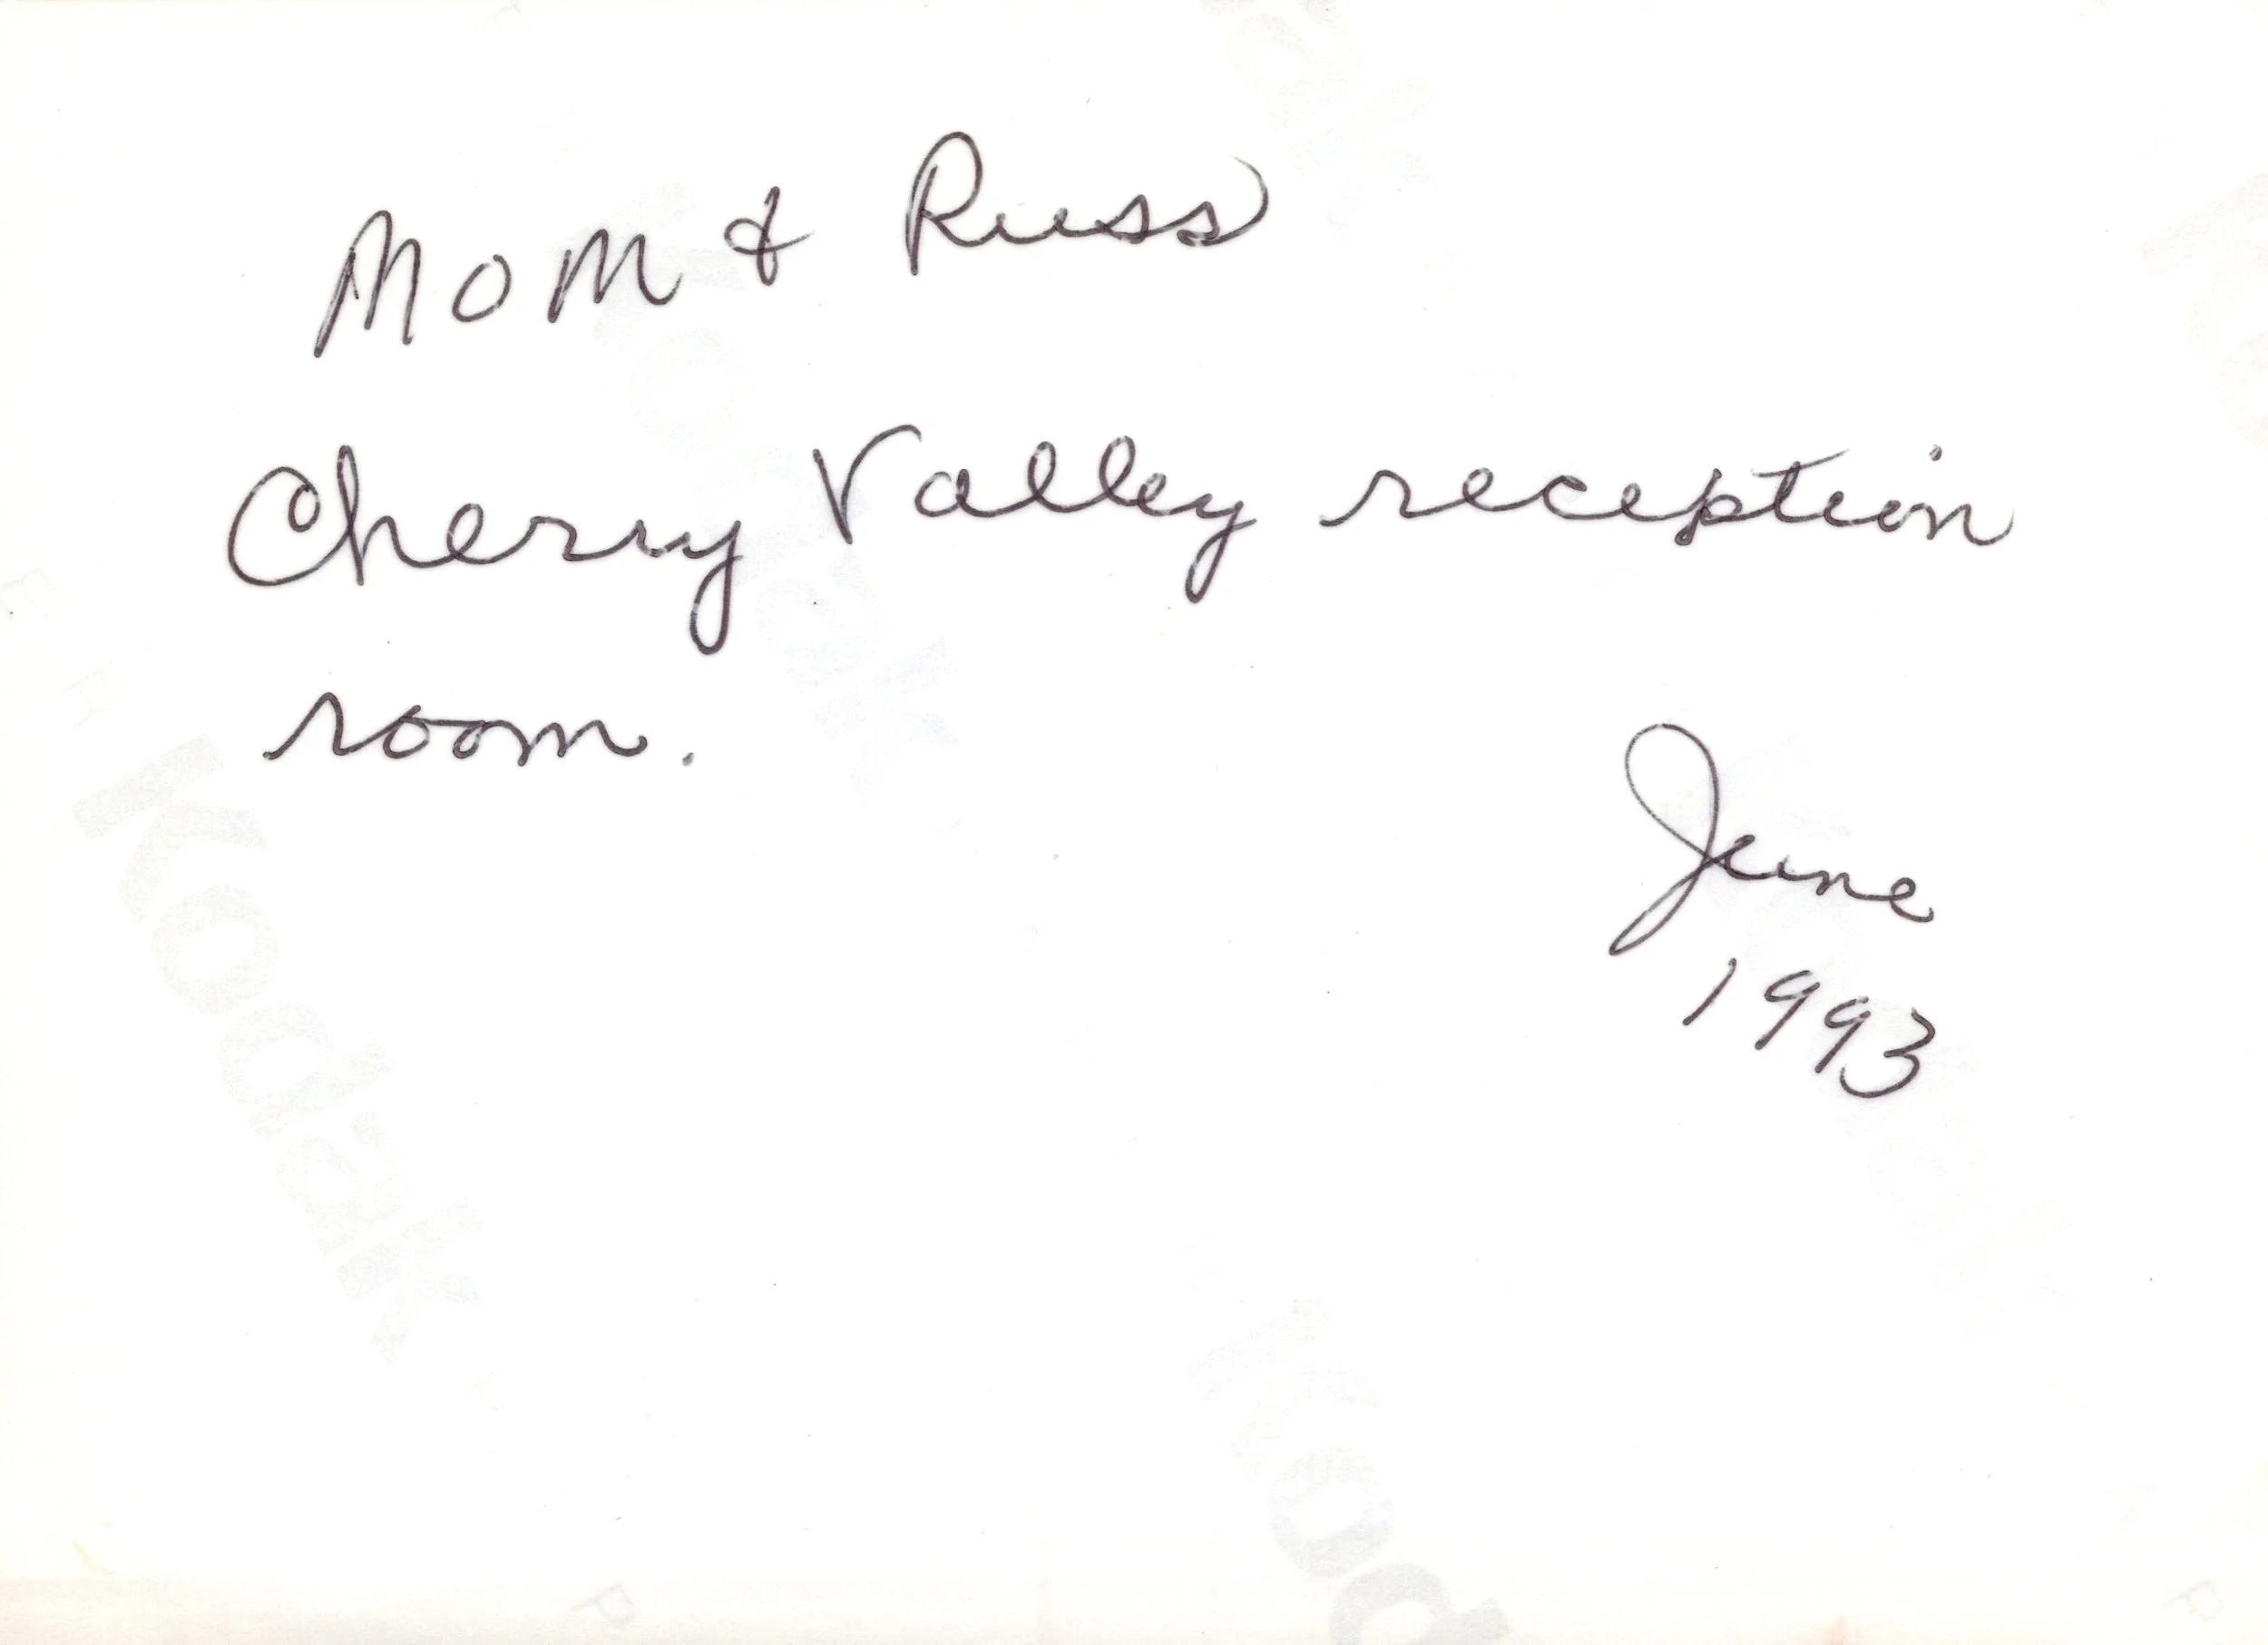 Mom & Russ
Cherry Valley reception
room.
June
1993
Kodak
Kodak